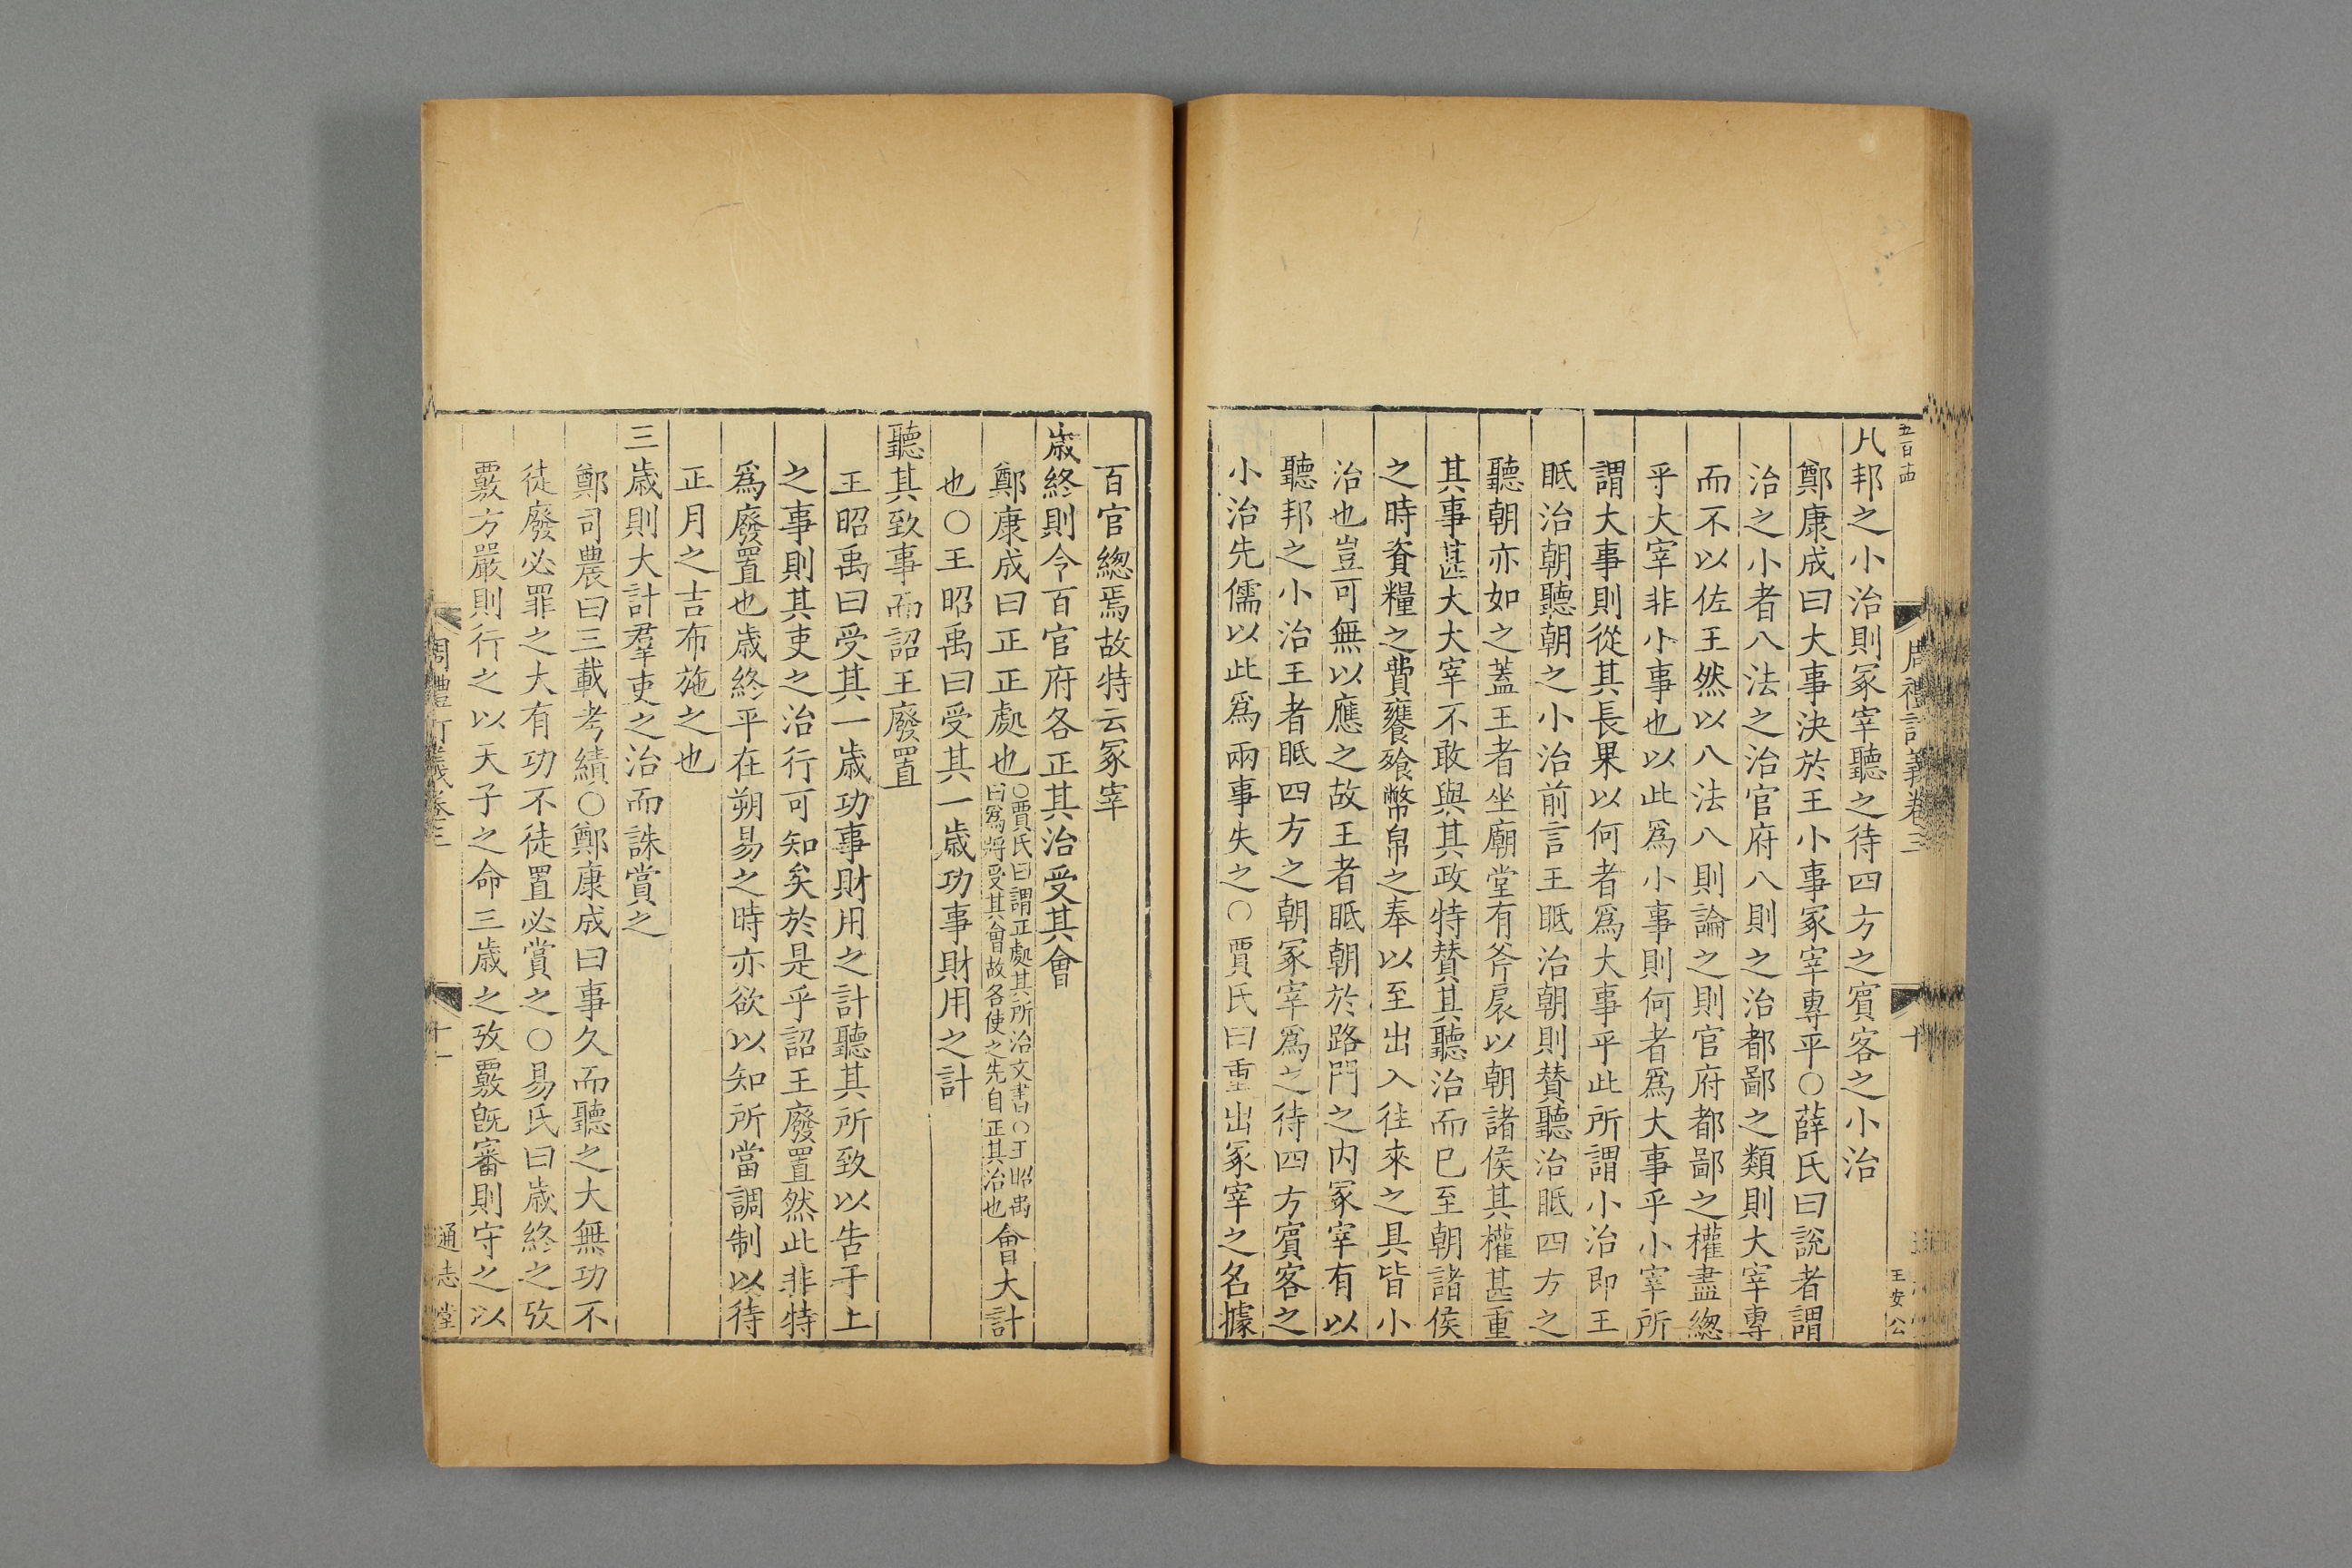 五百
周禮訂義卷三
十
王安公
凡邦之小治則冢宰聽之待四方之賓客之小治
鄭康成曰大事決於王小事冢宰專平○薛氏曰說者謂
治之小者八法之治官府八則之治都鄙之類則大宰專
而不以佐王然以八法八則論之則官府都鄙之權盡緫
乎大宰非小事也以此爲小事則何者爲大事乎小宰所
謂大事則從其長果以何者爲大事乎此所謂小治即王
眡治朝聽朝之小治前言王眡治朝則賛聽治眡四方之
聽朝亦如之蓋王者坐廟堂有斧扆以朝諸侯其權甚重
其事甚大大宰不敢與其政特賛其聽治而已至朝諸侯
之時資糧之費饔飱幣帛之奉以至出入往來之具皆小
治也豈可無以應之故王者眡朝於路門之内冢宰有以
聽邦之小治王者眡四方之朝冢宰爲之待四方賓客之
小治先儒以此爲兩事失之○賈氏曰重出冢宰之名據
百官緫焉故特云冢宰
歲終則令百官府各正其治受其會
鄭康成曰正正處也○賈氏曰謂正處其所治文書○王昭禹
曰爲將受其會故各使之先自正其治也會大計
也○王昭禹曰受其一歲功事財用之計
聽其致事而詔王廢置
王昭禹曰受其一歲功事財用之計聽其所致以告于上
之事則其吏之治行可知矣於是乎詔王廢置然此非特
爲廢置也歲終平在朔易之時亦欲以知所當調制以待
正月之吉布施之也
三歲則大計羣吏之治而誅賞之
鄭司農曰三載考績○鄭康成曰事久而聽之大無功不
徒廢必罪之大有功不徒置必賞之○易氏曰歲終之攷
覈方嚴則行之以天子之命三歲之攷覈旣審則守之以
周禮訂義卷三
十一
通志堂